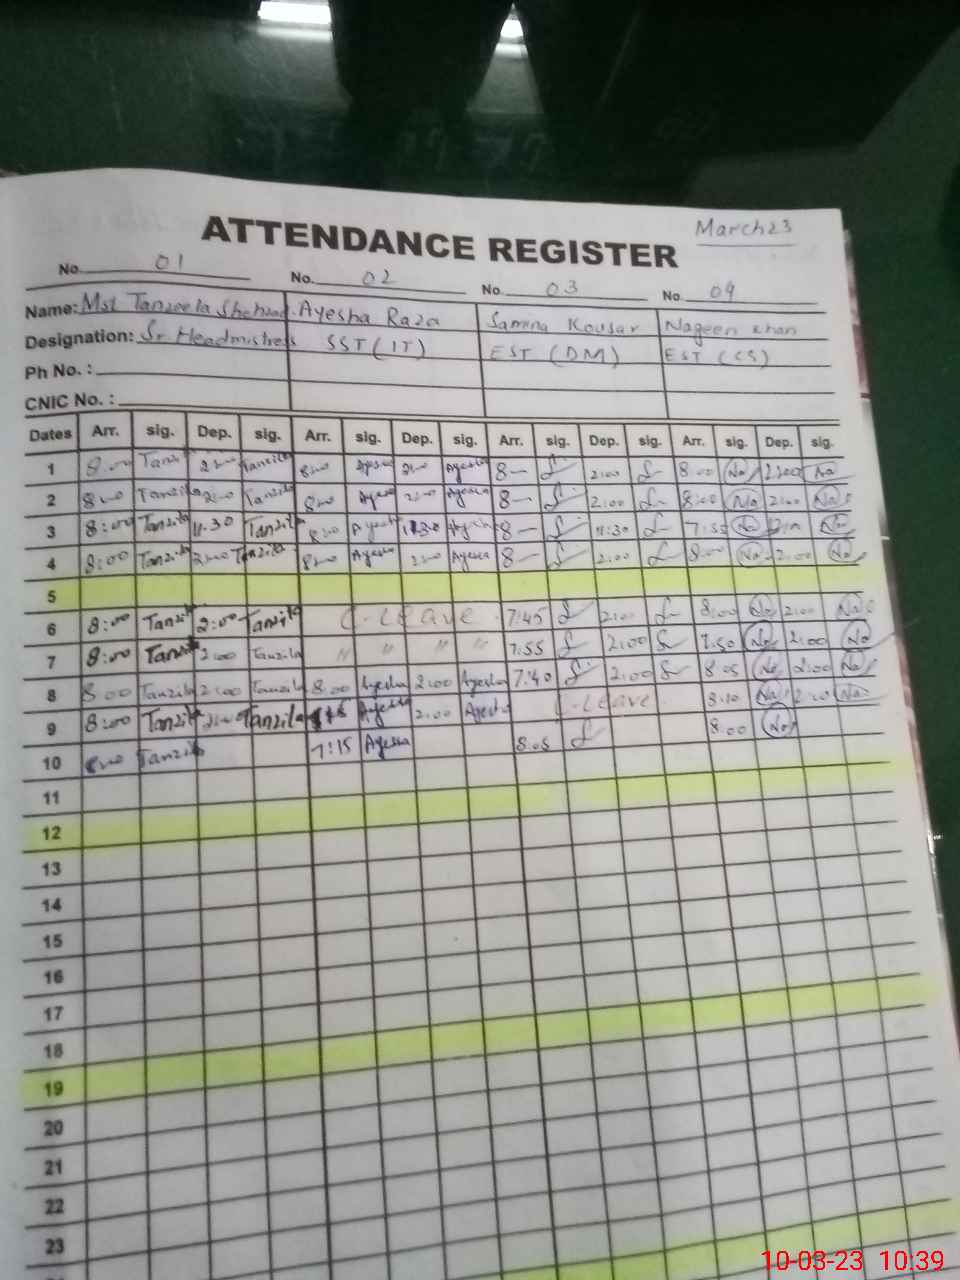 March 23
ATTENDANCE REGISTER
No. 01 No. 02 No. 03 No. 04
Name: Mst Tanzeela Shehzad Ayesha Raza Samina Kousar Nageen Khan
Designation: Sr. Headmistress SST (IT) EST (DM) EST (CS)
Ph No. :
CNIC No. :
Dates Arr. sig. Dep. sig. Arr. sig. Dep. sig. Arr. sig. Dep. sig. Arr. sig. Dep. sig.
1 8:00 Tanzila 2:00 Tanzila 8:00 Ayesha 2:00 Ayesha 8— 2:00 8:00 Na 2:00 Na
2 8:00 Tanzila 2:00 Tanzila 8:00 Ayesha 2:00 Ayesha 8— 2:00 8:00 Na 2:00 Na
3 8:00 Tanzila 11:30 Tanzila 8:00 Ayesha 11:30 Ayesha 8— 11:30 7:55 Na Na
4 8:00 Tanzila 2:00 Tanzila 8:00 Ayesha 2:00 Ayesha 8— 2:00 8:00 Na 2:00 Na
5
6 8:00 Tanzila 2:00 Tanzila C. Leave 7:45 2:00 8:00 Na 2:00 Na
7 8:00 Tanzila 2:00 Tanzila " " " " 7:55 2:00 7:50 Na 2:00 Na
8 8:00 Tanzila 2:00 Tanzila 8:00 Ayesha 2:00 Ayesha 7:40 2:00 8:05 Na 2:00 Na
9 8:00 Tanzila 2:00 Tanzila Ayesha 2:00 Ayesha C. Leave 8:10 Na Na
10 8:00 Tanzila 7:15 Ayesha 8:05 8:00 Na
11
12
13
14
15
16
17
18
19
20
21
22
23
10-03-23 10:39